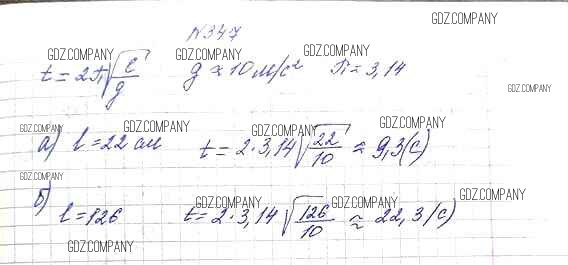 GDZ.COMPANY
N347
GDZ.COMPANY GDZ.COMPANY GDZ.COMPANY
t = 2π√(l/g) g ≈ 10 м/с² π = 3,14
GDZ.COMPANY
GDZ.COMPANY GDZ.COMPANY GDZ.COMPANY GDZ.COMPANY
а) l = 22 см t = 2·3,14√(22/10) ≈ 9,3(с)
GDZ.COMPANY
GDZ.COMPANY GDZ.COMPANY GDZ.COMPANY
б) l = 126 t = 2·3,14√(126/10) ≈ 22,3(с)
GDZ.COMPANY